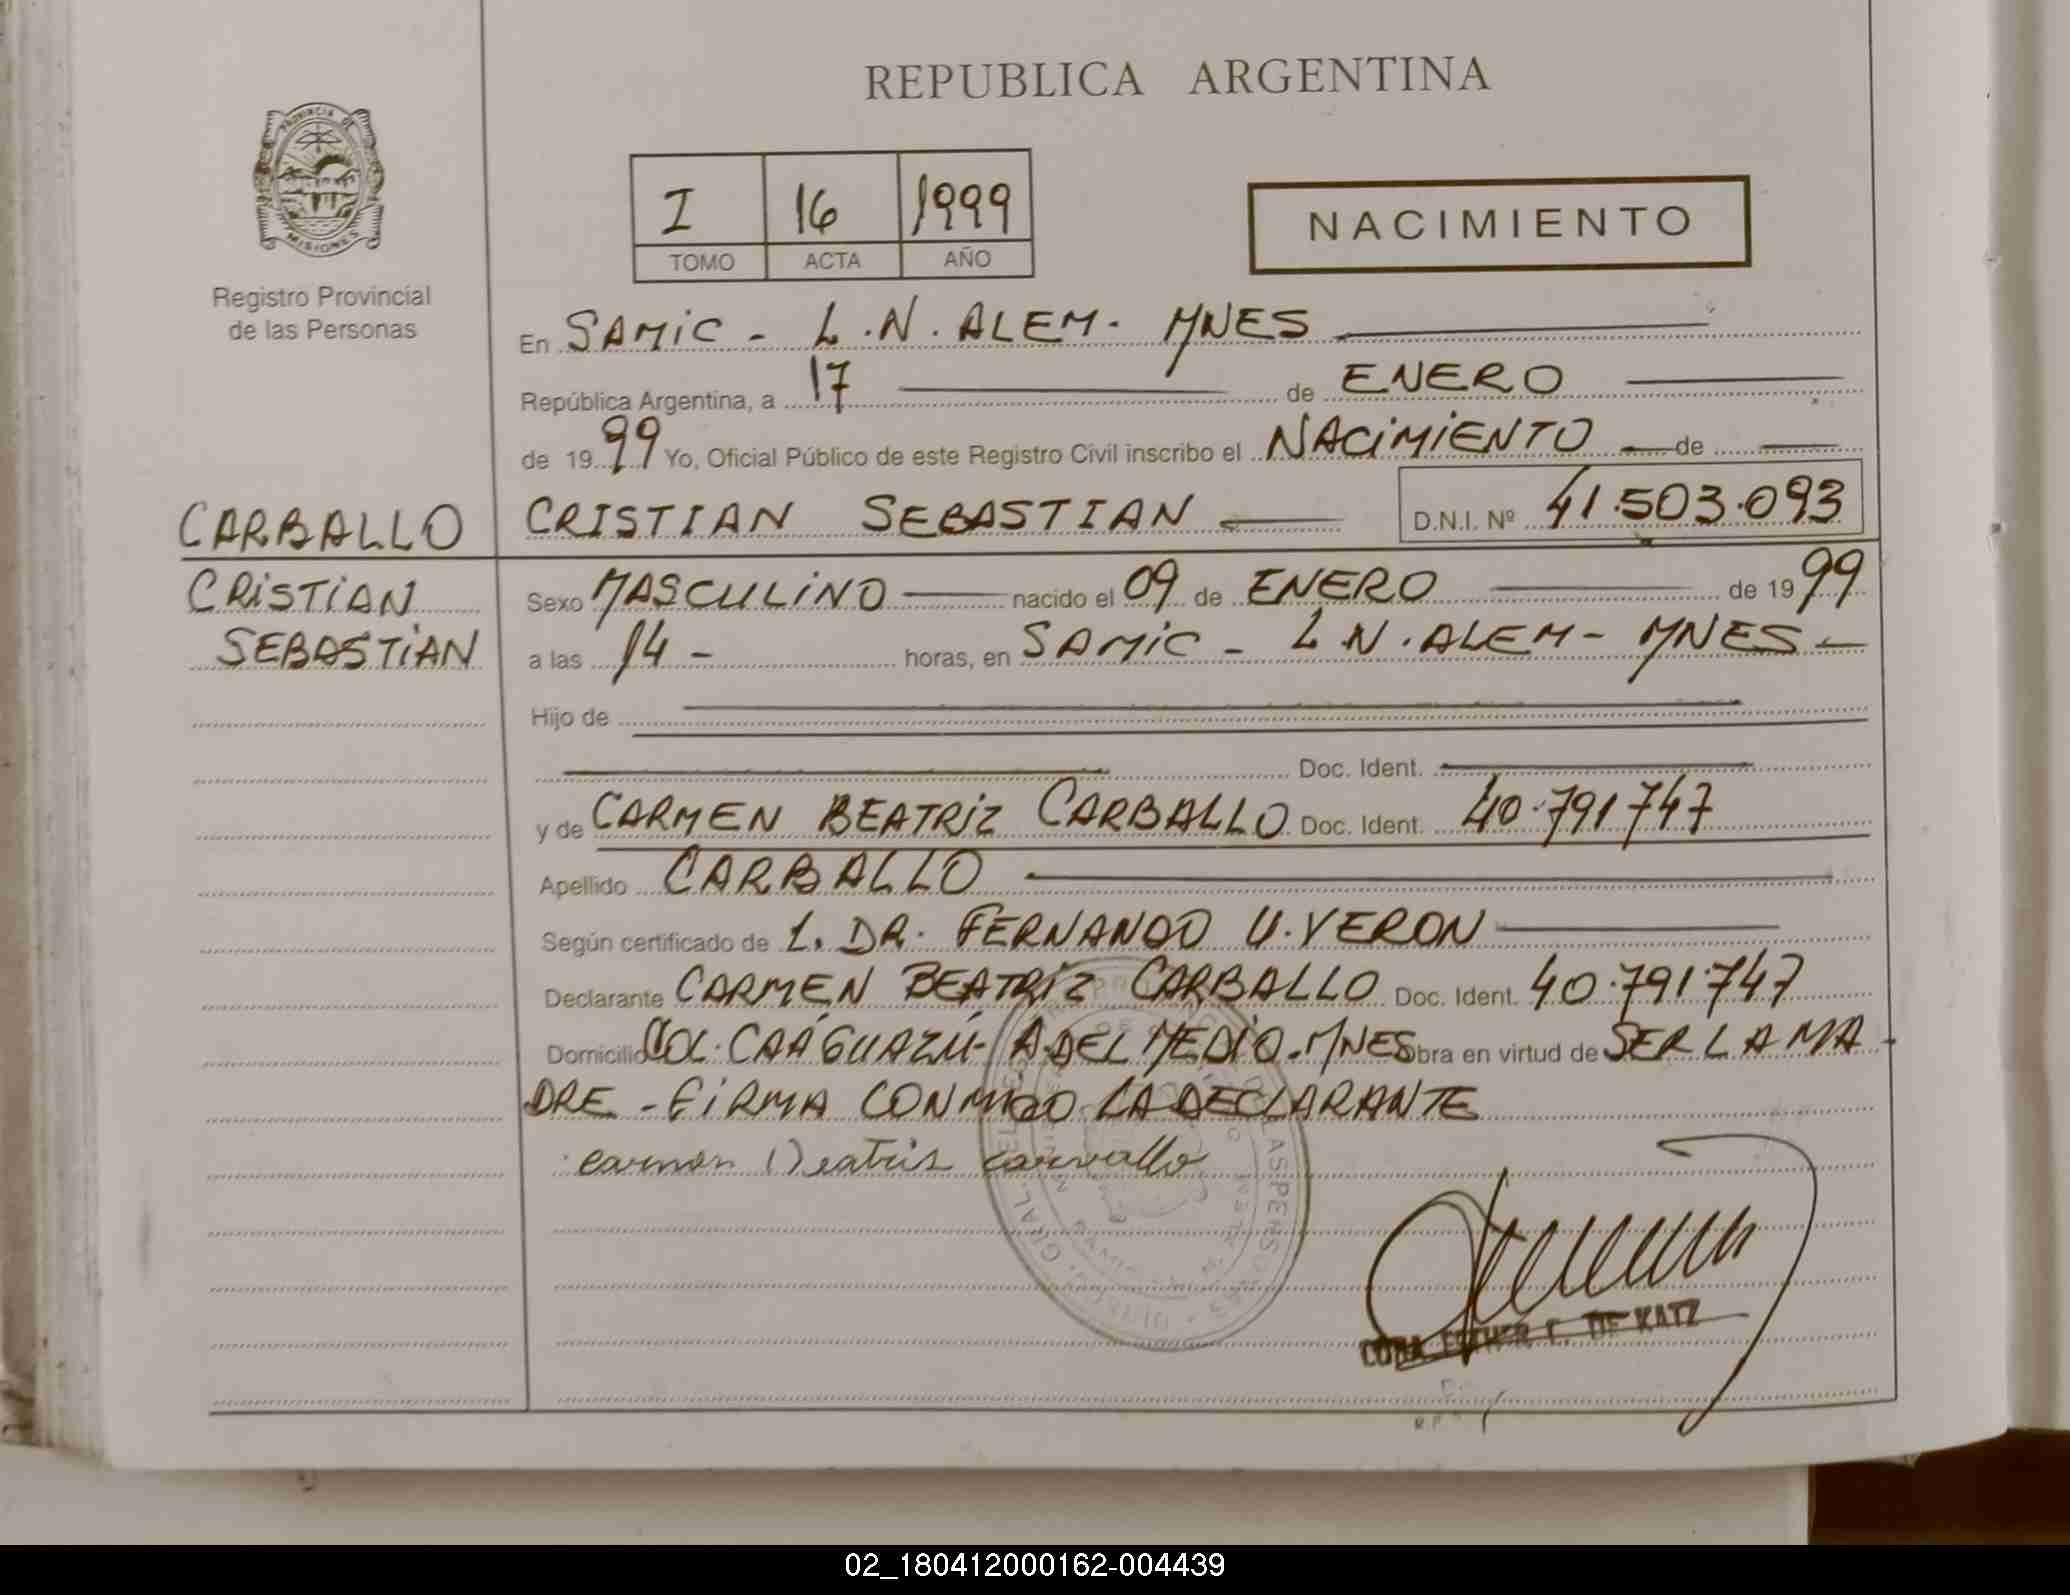 REPUBLICA ARGENTINA
PROVINCIA DE
MISIONES
I 16 1999
TOMO ACTA AÑO
NACIMIENTO
Registro Provincial
de las Personas
En SAMIC - L.N. ALEM - MNES
República Argentina, a 17 de ENERO
de 1999 Yo, Oficial Público de este Registro Civil inscribo el NACIMIENTO de
CARBALLO CRISTIAN SEBASTIAN D.N.I. Nº 41.503.093
CRISTIAN
SEBASTIAN
Sexo MASCULINO nacido el 09 de ENERO de 1999
a las 14 - horas, en SAMIC - L N. ALEM - MNES -
Hijo de
Doc. Ident.
y de CARMEN BEATRIZ CARBALLO Doc. Ident. 40.791747
Apellido CARBALLO
Según certificado de L. DR. FERNANDO U. VERON
Declarante CARMEN BEATRIZ CARBALLO Doc. Ident. 40.791.747
Domicilio COL. CAÁGUAZÚ - A DEL MEDIO - MNES obra en virtud de SER LA MA-
DRE - FIRMA CONMIGO LA DECLARANTE
carmen Beatris carvallo
ESTHER F. DE KATZ
02_180412000162-004439